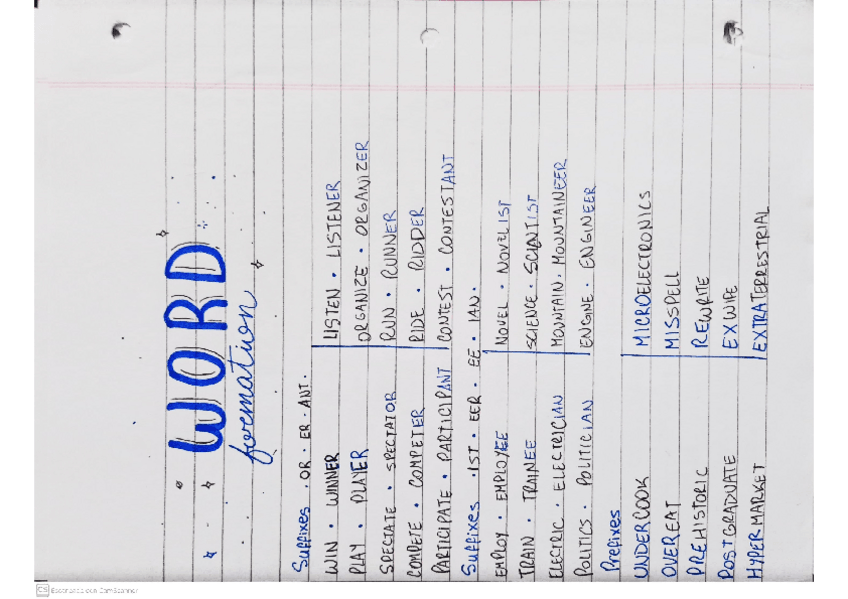 WORD
formation
Suffixes · OR · ER · ANT ·
WIN · WINNER
LISTEN · LISTENER
PLAY · PLAYER
ORGANIZE · ORGANIZER
SPECTATE · SPECTATOR
RUN · RUNNER
COMPETE · COMPETER
RIDE · RIDDER
PARTICIPATE · PARTICIPANT
CONTEST · CONTESTANT
Suffixes · IST · EER · EE · IAN ·
EMPLOY · EMPLOYEE
NOVEL · NOVELIST
TRAIN · TRAINEE
SCIENCE · SCIENTIST
ELECTRIC · ELECTRICIAN
MOUNTAIN · MOUNTAINEER
POLITICS · POLITICIAN
ENGINE · ENGINEER
Prefixes
UNDERCOOK
MICROELECTRONICS
OVEREAT
MISSPELL
PREHISTORIC
REWRITE
POSTGRADUATE
EXWIFE
HYPERMARKET
EXTRATERRESTRIAL
CS Escaneado con CamScanner